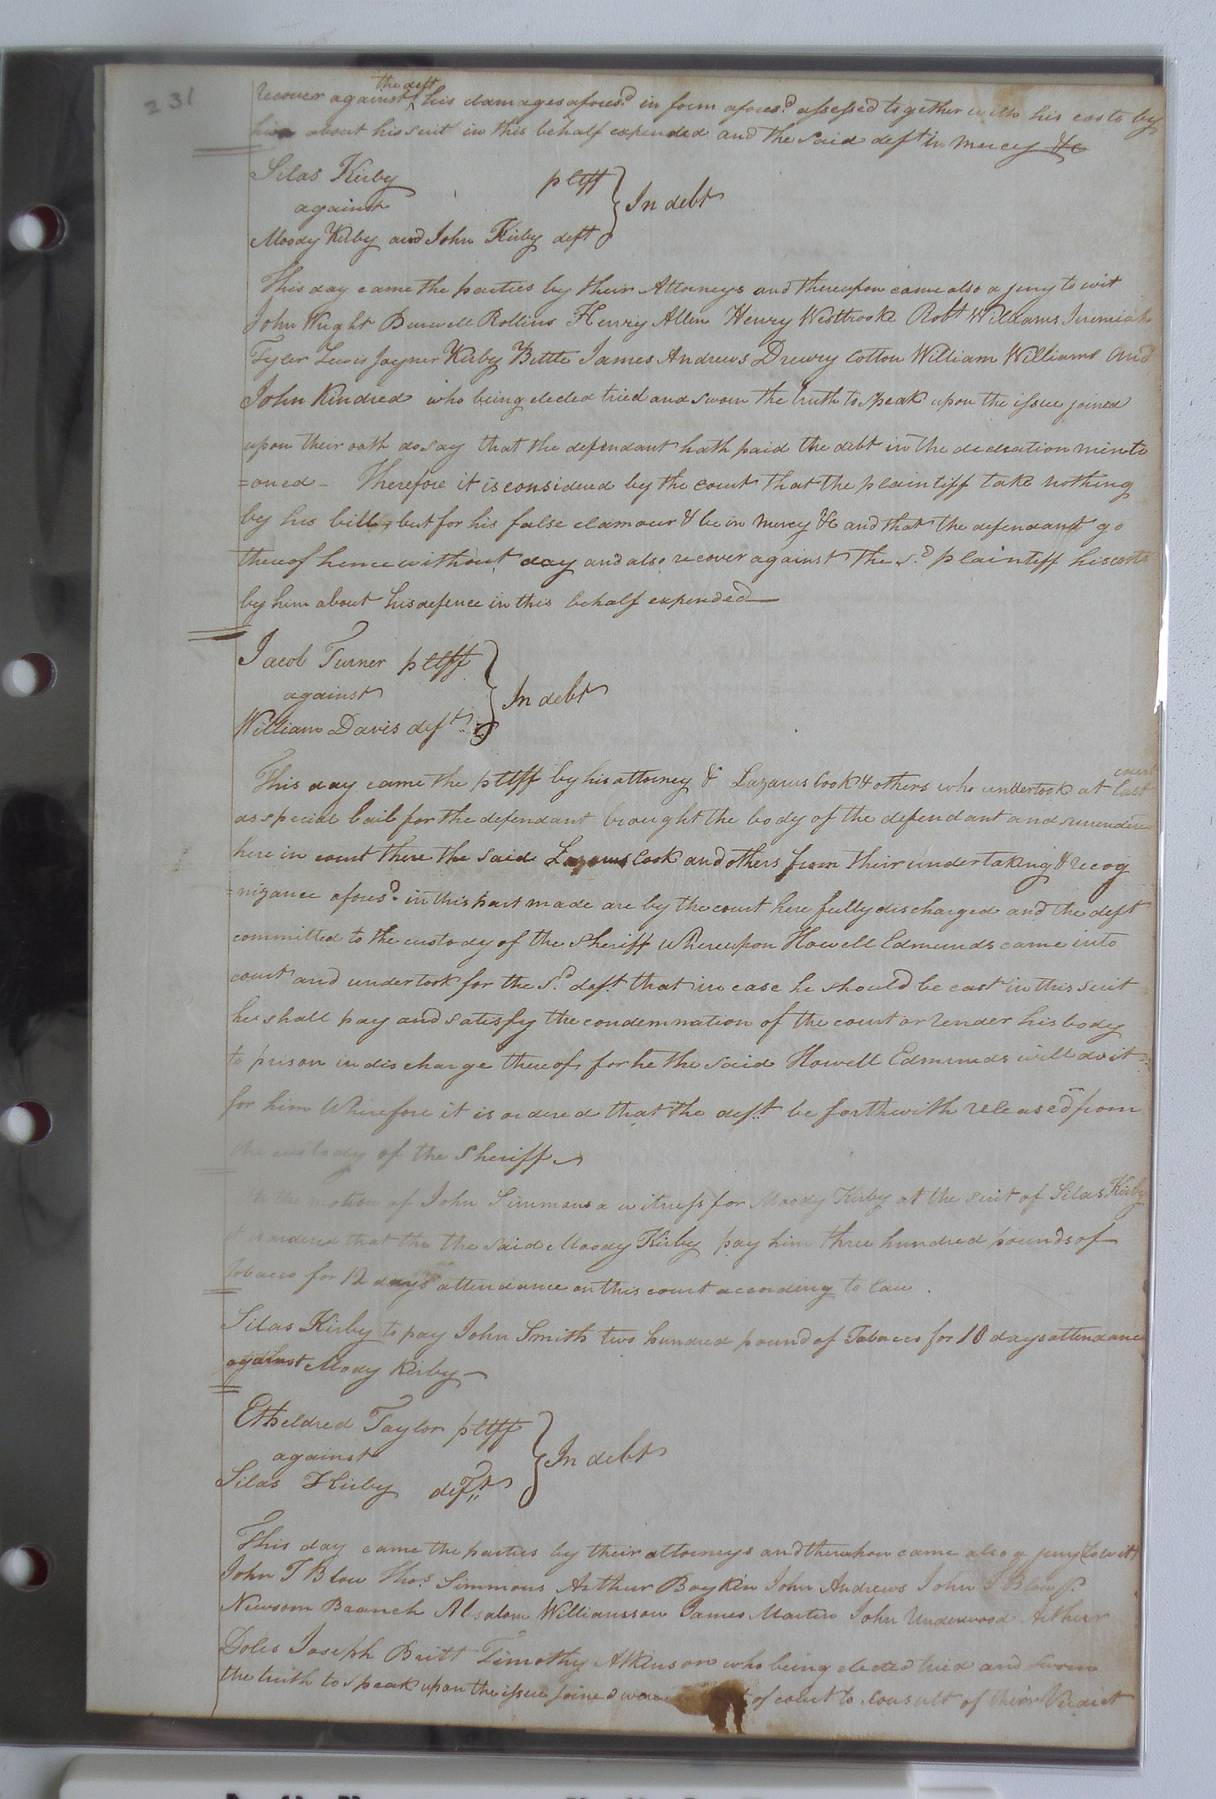 231
the deft
recover against his damages afores.d in form afores.d assessed together with his costs by
him about his suit in this behalf expended and the said deft in mercy &c
Silas Kirby pltff
against
In debt
Moody Kirby and John Kirby deft
This day came the parties by their Attorneys and thereupon came also a jury to wit
John Wright Burwell Rollins Henry Allen Henry Westbrooke Robt Williams Jeremiah
Tyler Lewis Joyner Kirby Bittle James Andrews Drewry Cotton William Williams and
John Kindred who being elected tried and sworn the truth to speak upon the issue joined
upon their oath do say that the defendant hath paid the debt in the declaration menti
=oned – Therefore it is considered by the court that the plaintiff take nothing
by his bill, but for his false clamour & be in mercy &c and that the defendant go
thereof hence without day and also recover against the s.d plaintiff his costs
by him about his defence in this behalf expended
Jacob Turner pltff
against
In debt
William Davis deft
This day came the pltff by his attorney & Lazarus Cook & others who undertook at last
court
as special bail for the defendant brought the body of the defendant and surrender
here in court there the said Lazarus Cook and others from their undertaking & recog
=nizance afores.d in this part made are by the court here fully discharged and the deft
committed to the custody of the Sheriff whereupon Howell Edmunds came into
court and undertook for the s.d deft that in case he should be cast in this suit
he shall pay and satisfy the condemnation of the court or render his body
to prison in discharge thereof, for he the said Howell Edmunds will do it
for him Wherefore it is ordered that the deft be forthwith released from
the custody of the Sheriff
On the motion of John Simmons a witness for Moody Kirby at the suit of Silas Kirby
it is ordered that the the said Moody Kirby pay him three hundred pounds of
Tobacco for 12 days attendance on this court according to law.
Silas Kirby to pay John Smith two hundred pound of Tobacco for 10 days attendance
against Moody Kirby –
Etheldred Taylor pltff
against
In debt
Silas Kirby deft
This day came the parties by their attorneys and thereupon came also a jury (to wit)
John T Blow Thos. Simmons Arthur Boykin John Andrews John T Blow Jr.
Newsom Branch Absalom Williamson James Martin John Underwood Arthur
Doles Joseph Britt Timothy Atkinson who being elected tried and sworn
the truth to speak upon the issue joined of court to consult of their Verdict